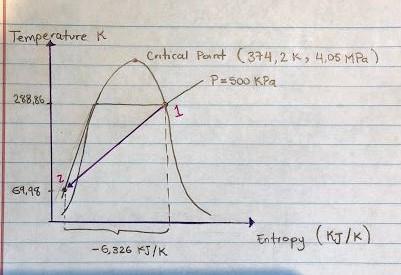 Temperature K
Critical Point (374,2 K, 4,05 MPa)
P=500 KPa
288,86
1
2
69,98
-6,326 KJ/K
Entropy (KJ/K)